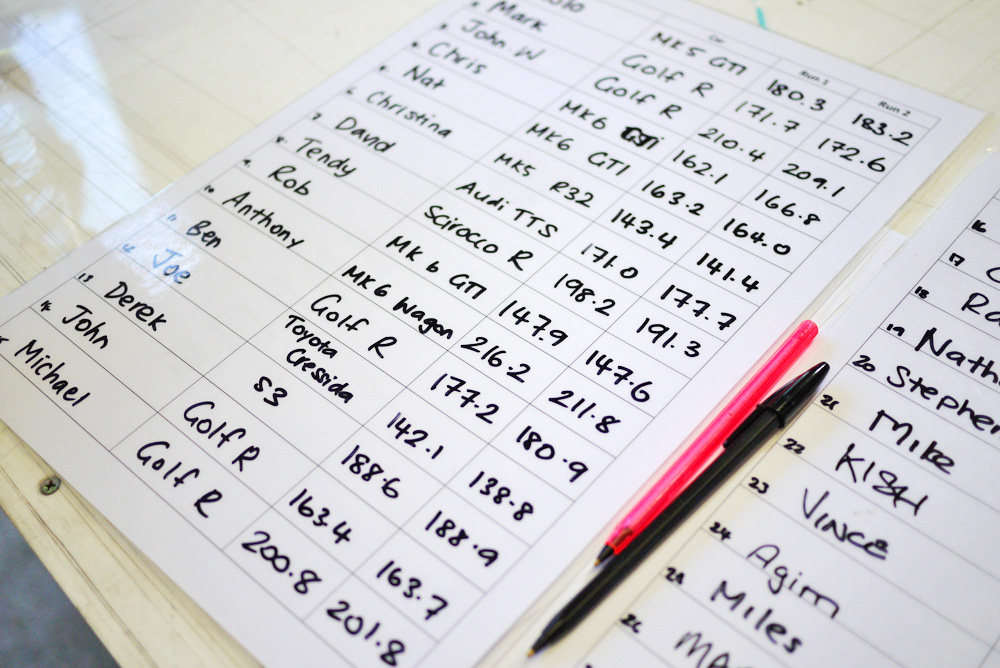 Car Run 1 Run 2
MK5 GTI 180.3 183.2
Mark Golf R 171.7 172.6
John W Golf R 210.4 209.1
Chris MK6 GTI 162.1 166.8
Nat MK6 GTI 163.2 164.0
Christina MK5 R32 143.4 141.4
7 David Audi TTS 171.0 177.7
8 Tendy Scirocco R 198.2 191.3
9 Rob MK6 GTI 147.9 147.6
10 Anthony MK6 Wagon 216.2 211.8
11 Ben Golf R 177.2 180.9
12 Joe Toyota Cressida 142.1 138.8
13 Derek S3 188.6 188.9
14 John Golf R 163.4 163.7
Michael Golf R 200.8 201.8
16
17
18
19 Nath
20 Stephen
21 Mike
22 KISH
23 VINCE
24 Agim
25 Miles
26